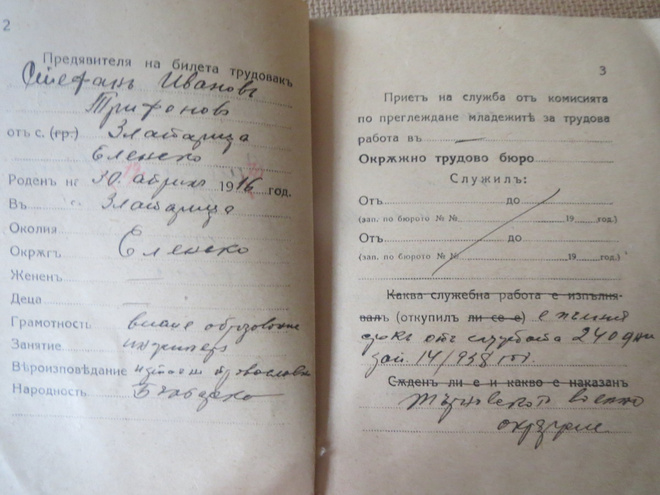 2
Предявителя на билета трудовакъ
Стефанъ Ивановъ
Трифоновъ
отъ с. (гр.) Златарица
Еленско
Роденъ на 30 априлъ 1916 год.
Въ Златарица
Околия
Окржгъ Еленско
Жененъ
Деца
Грамотность висше образование
Занятие
Вѣроизповѣдание източно православно
Народность
3
Приетъ на служба отъ комисията
по преглеждане младежитѣ за трудова
работа въ
Окржжно трудово бюро
Служилъ:
Отъ до
(зап. по бюрото № № 19 год.)
Отъ до
(зап. по бюрото № № 19 год.)
Каква служебна работа е изпълня-
валъ (откупилъ ли се е) е пълния
срокъ отъ службата 240 дни
зап. 14/938 год.
Сжденъ ли е и какво е наказанъ
Търновско военно
окръжие